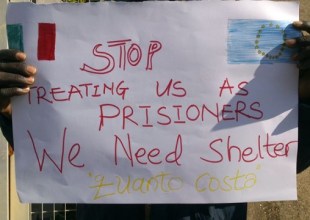 STOP
TREATING US AS
PRISIONERS
We Need Shelter
"Quanto costa"